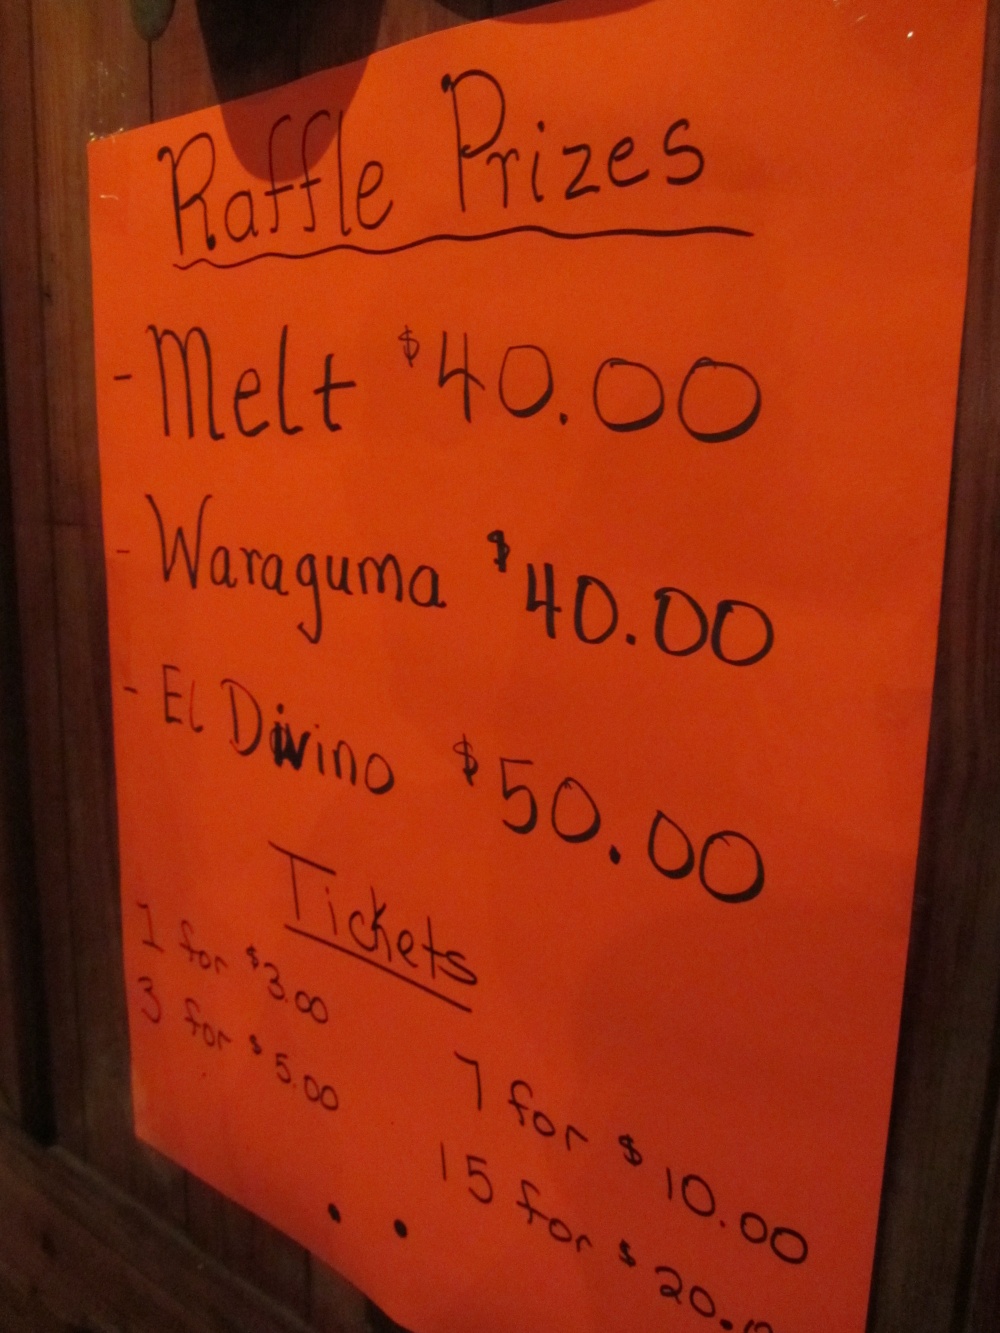 Raffle Prizes
- Melt $40.00
- Waraguma $40.00
- El Divino $50.00
Tickets
1 for $3.00
3 for $5.00
7 for $10.00
15 for $20.